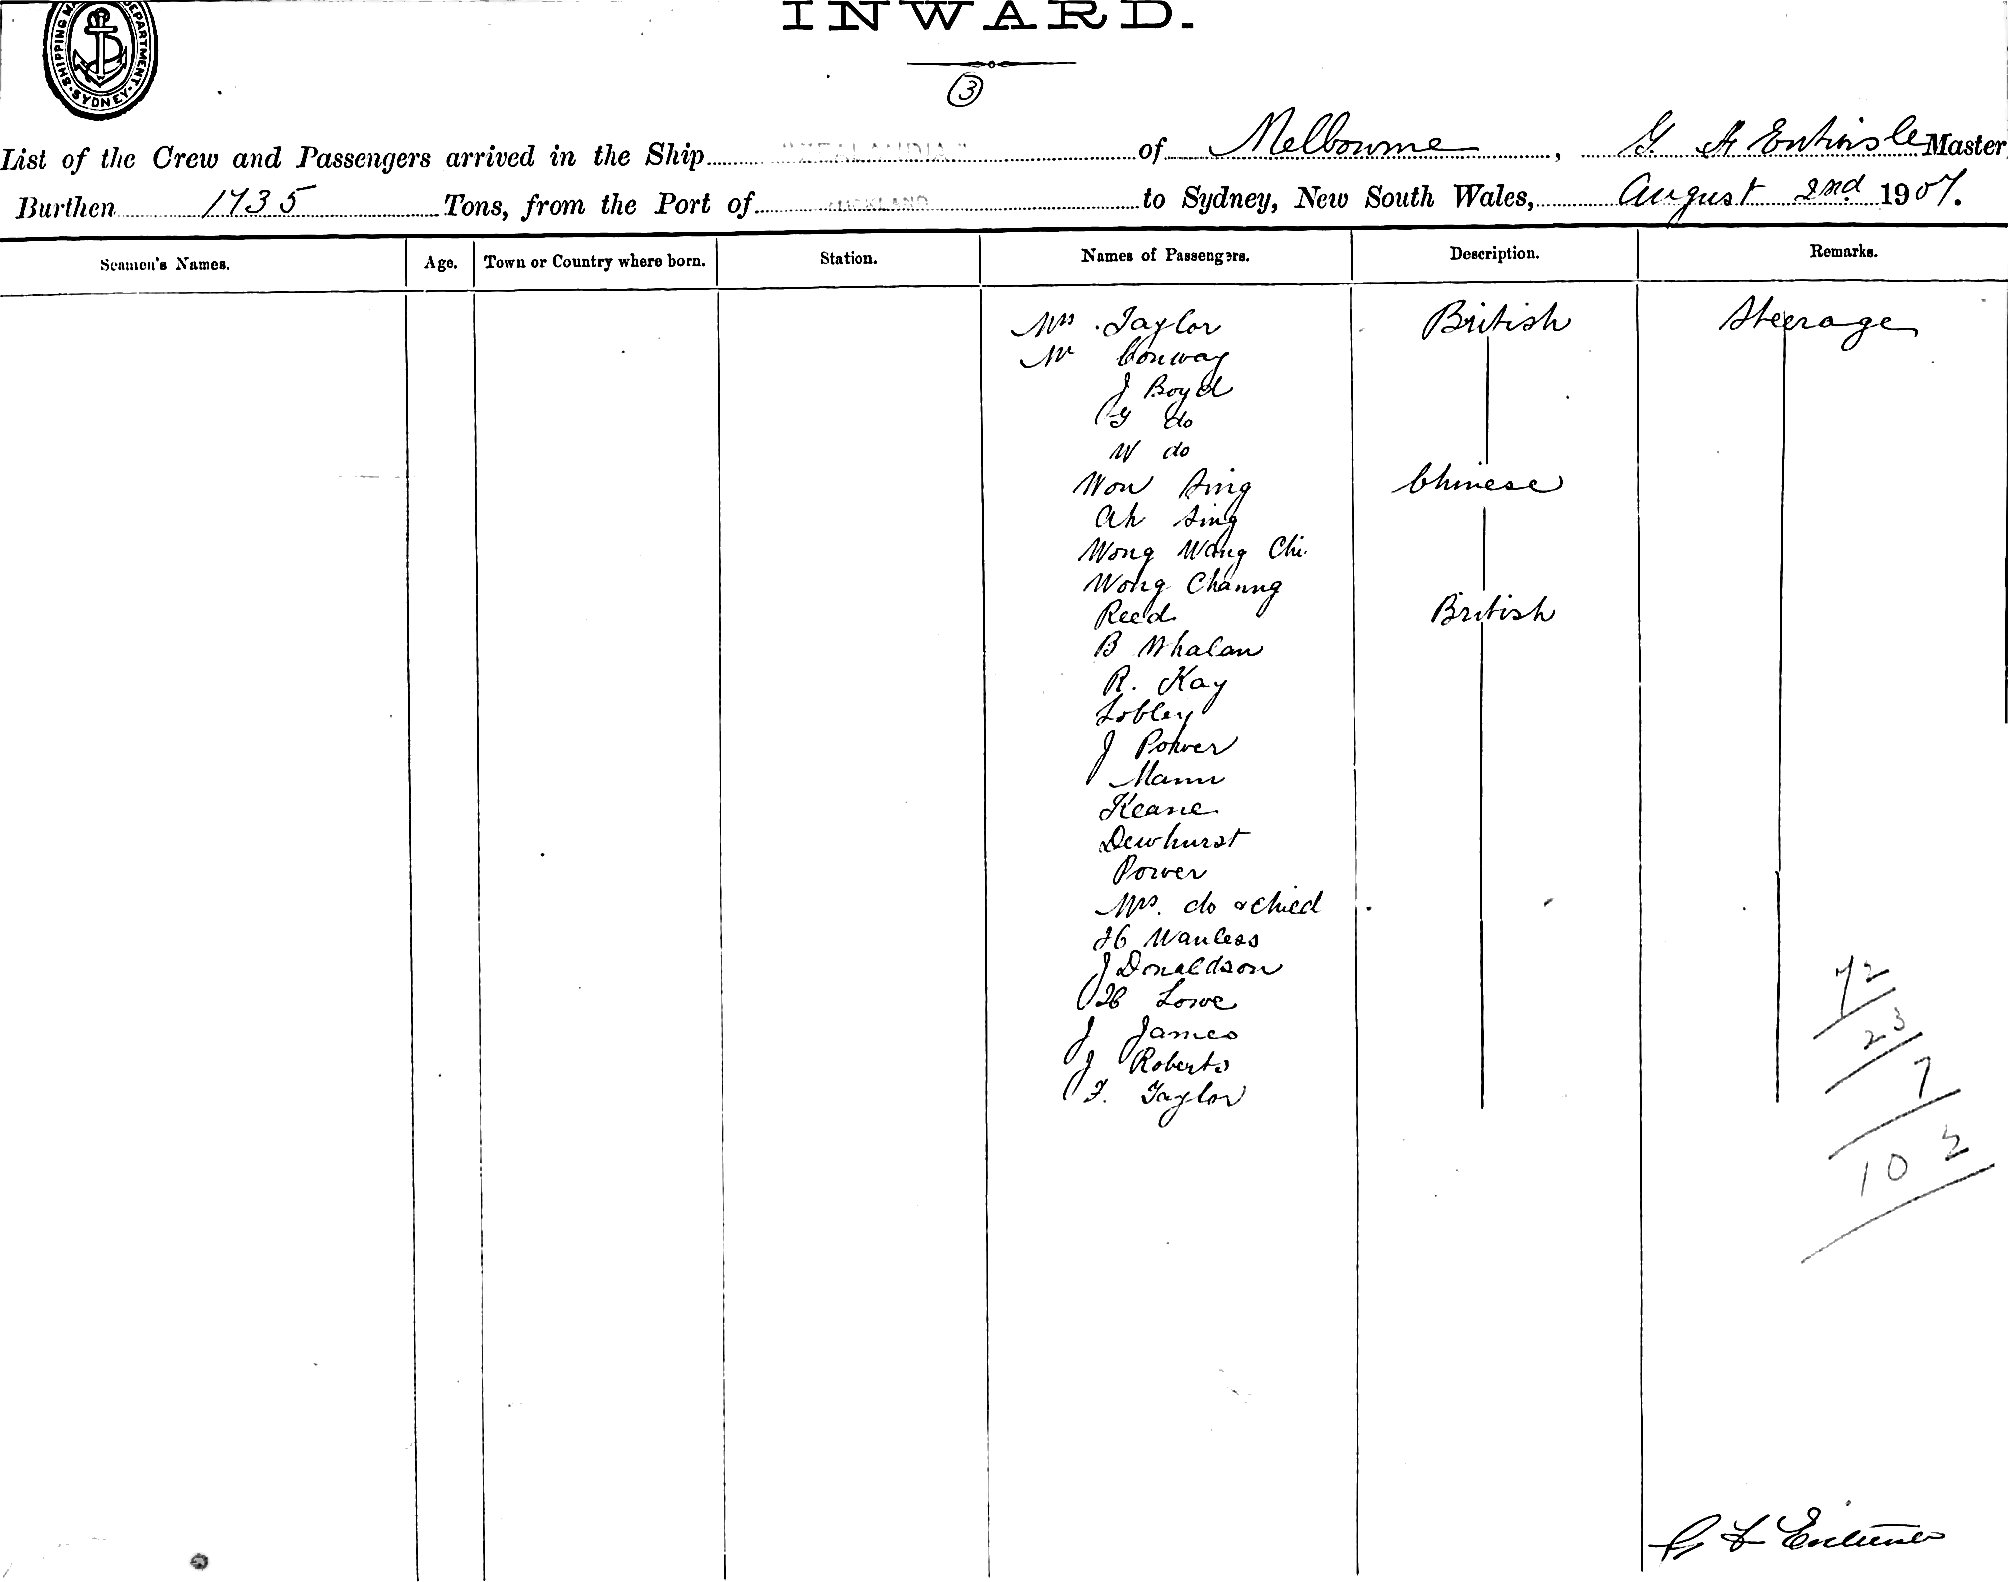 INWARD.
SHIPPING DEPARTMENT SYDNEY
3
List of the Crew and Passengers arrived in the Ship "ZEALANDIA" of Melbourne, G. A Entwisle Master
Burthen 1735 Tons, from the Port of AUCKLAND to Sydney, New South Wales, August 2nd 1907.
Seamen's Names. Age. Town or Country where born. Station. Names of Passengers. Description. Remarks.
Mrs Taylor British Steerage
Mr Conway
J Boyd
G do
W do
Won Sing Chinese
Ah Sing
Wong Wang Chi
Wong Channg
Reed British
B Whalan
R. Kay
Lobley
J Power
Mann
Keane
Dewhurst
Power
Mrs. do & Child
H Wanless
J Donaldson
H Lowe
J James
J Roberts
F. Taylor
72
23
7
102